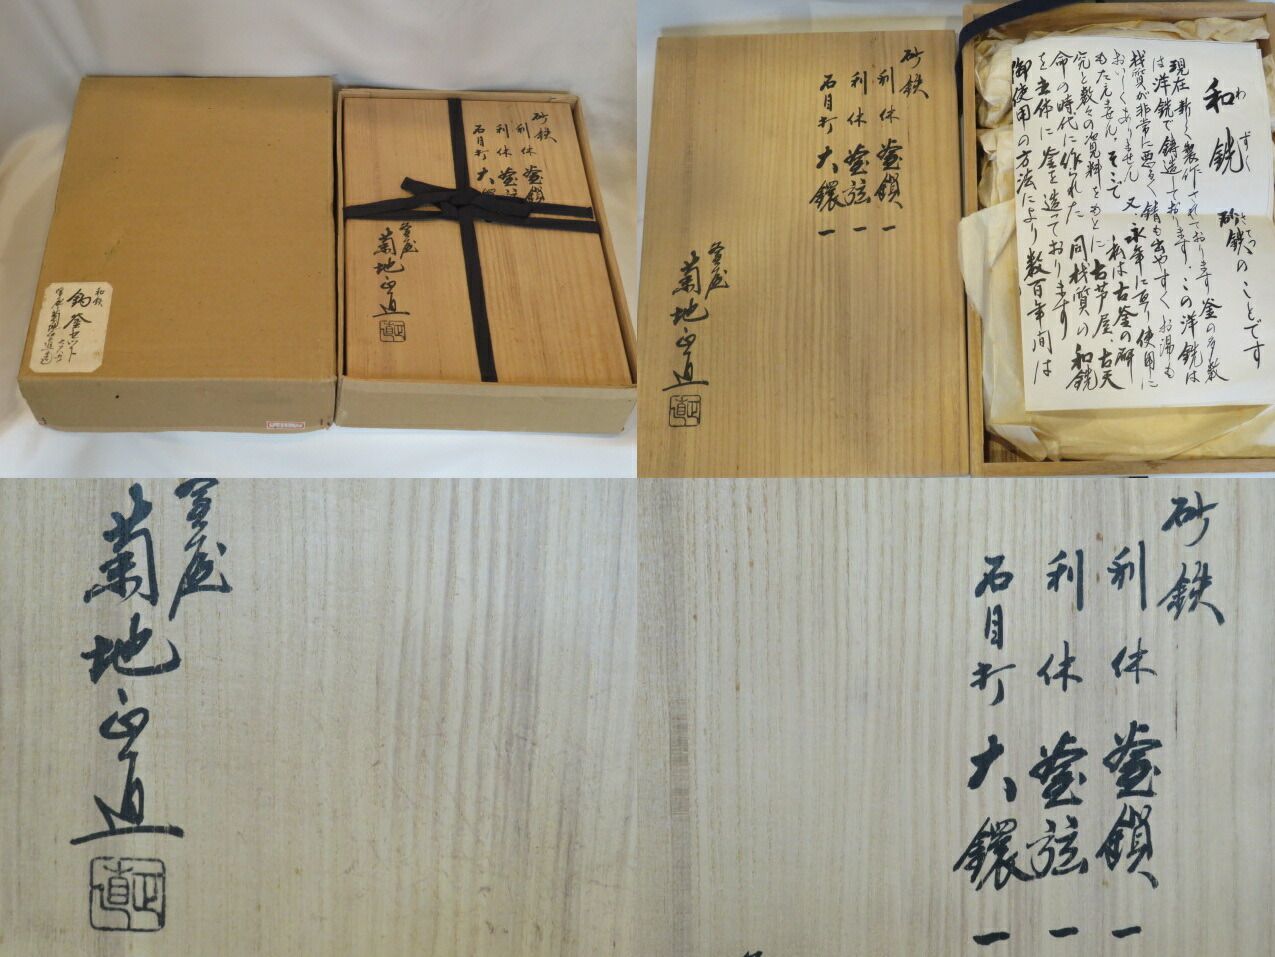 砂鉄
利休 釜鎖
利休 釜弦
石目打 大鐶
釜屋
菊地正直
和銑
釣釜セット
砂鉄
利休 釜鎖 一
利休 釜弦 一
石目打 大鐶 一
釜屋
菊地正直
正直
和銑 砂鉄のことです
わずく さてつ
現在新しく製作されております釜の多数
は洋銑で鋳造しております。この洋銑は
材質が非常に悪るく錆も出やすくお湯も
おいしくありません 又、永年に亘り使用に
もたえません。そこで 私は古釜の研
究と数々の資料をもとに 古芦屋、古天
命の時代に作られた 同材質の 和銑
を主体に 釜を造っております
御使用の方法により数百年間は
釜屋
菊地正直
正直
砂鉄
利休 釜鎖 一
利休 釜弦 一
石目打 大鐶 一